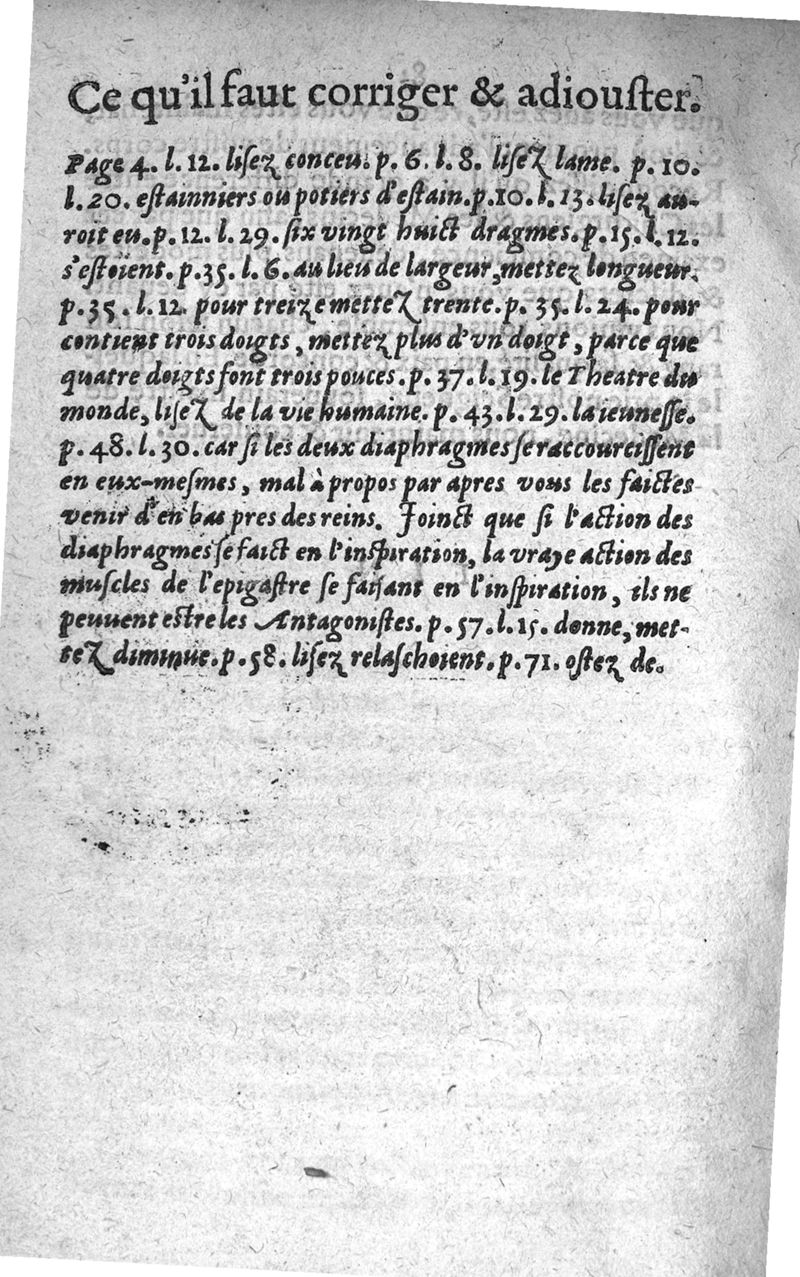 Ce qu'il faut corriger & adiouſter.
Page 4. l. 12. liſez conceu. p. 6. l. 8. liſez lame. p. 10.
l. 20. eſtainniers ou potiers d'eſtain. p. 10. l. 13. liſez au-
roit eu. p. 12. l. 29. ſix vingt huict dragmes. p. 15. l. 12.
s'eſtoient. p. 35. l. 6. au lieu de largeur, mettez longueur.
p. 35. l. 12. pour treize mettez trente. p. 35. l. 24. pour
contient trois doigts, mettez plus d'vn doigt, parce que
quatre doigts font trois pouces. p. 37. l. 19. le Theatre du
monde, liſez de la vie humaine. p. 43. l. 29. la ieuneſſe.
p. 48. l. 30. car ſi les deux diaphragmes ſe raccourciſſent
en eux-meſmes, mal à propos par apres vous les faictes
venir d'en bas pres des reins. Joinct que ſi l'action des
diaphragmes ſe faict en l'inſpiration, la vraye action des
muſcles de l'epigaſtre ſe faiſant en l'inſpiration, ils ne
peuuent estre les Antagoniſtes. p. 57. l. 15. donne, met-
tez diminue. p. 58. liſez relaſchoient. p. 71. oſtez de.